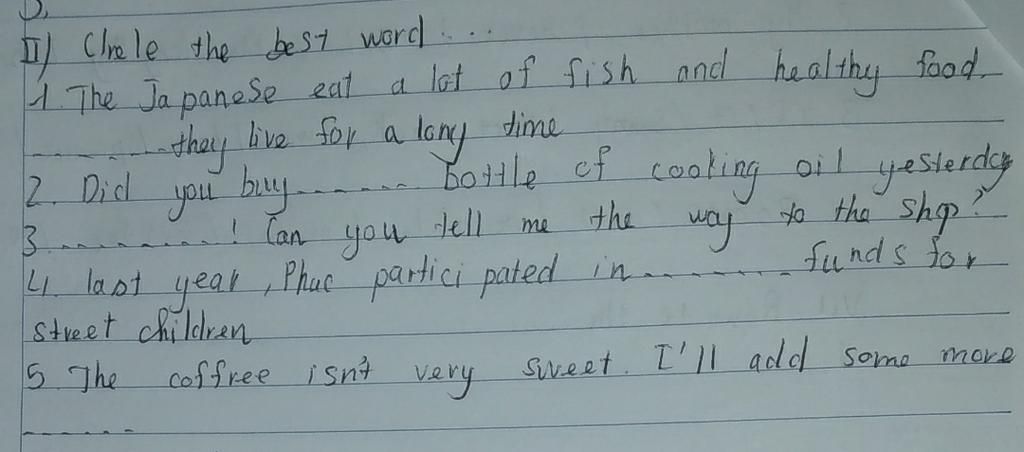 II) Circle the best word...
1. The Japanese eat a lot of fish and healthy food.
......... they live for a long time
2. Did you buy ........ bottle of cooking oil yesterday
3 ..........! Can you tell me the way to the shop?
4. last year, Phuc participated in ......... funds for
street children
5. The coffree isn't very sweet. I'll add some more
.......